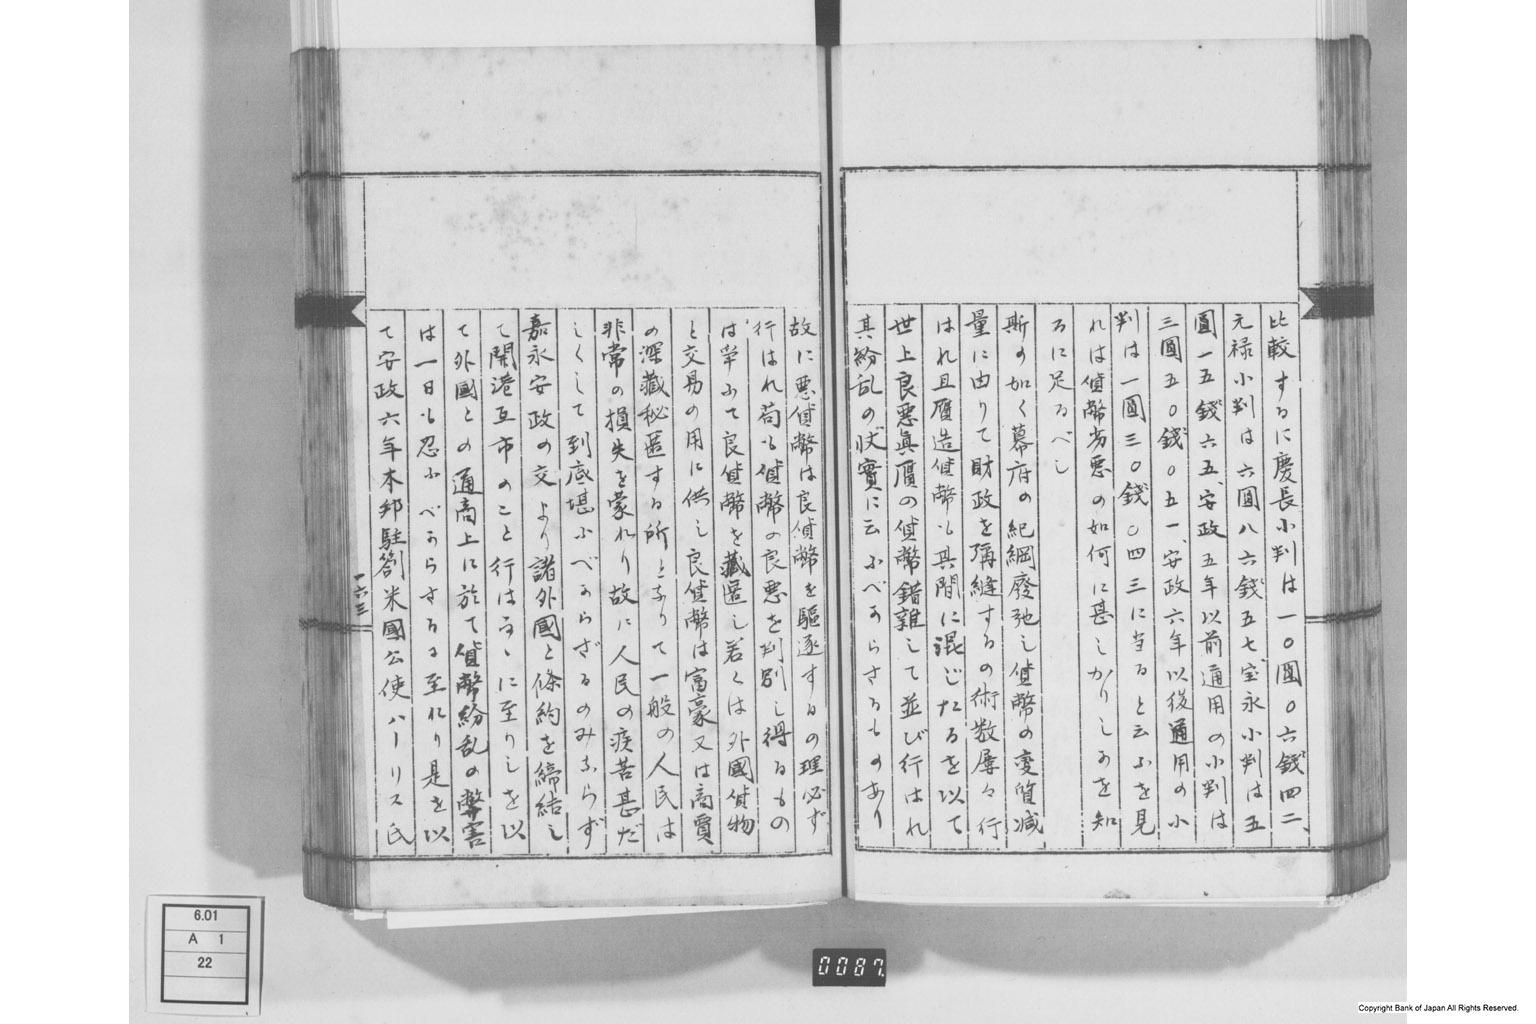 比較するに慶長小判は一〇圓〇六錢四二、
元禄小判は六圓八六錢五七、宝永小判は五
圓一五錢六五、安政五年以前通用の小判は
三圓五〇錢〇五一、安政六年以後通用の小
判は一圓三〇錢〇四三に当ると云ふを見
れは貨幣劣悪の如何に甚しかりしかを知
るに足るべし
斯の如く幕府の紀綱廢弛し貨幣の変質減
量に由りて財政を彌縫するの術数屡々行
はれ且贋造貨幣も其間に混じたるを以て
世上良悪真贋の貨幣錯雜して並び行はれ
其紛乱の状實に云ふべからさるものあり
故に悪貨幣は良貨幣を驅逐するの理必ず
行はれ苟も貨幣の良悪を判別し得るもの
は挙ふて良貨幣を藏匿し若くは外國貨物
と交易の用に供し良貨幣は富豪又は商賈
の深藏秘匿する所となりて一般の人民は
非常の損失を蒙れり故に人民の疾苦甚だ
しくして到底堪ふべからざるのみならず
嘉永安政の交より諸外國と條約を締結し
て開港互市のこと行はるゝに至りしを以
て外國との通商上に於て貨幣紛乱の弊害
は一日も忍ふべからするに至れり是を以
て安政六年本邦駐箚米國公使ハーリス氏
一六三
6.01
A 1
22
0087
Copyright Bank of Japan All Rights Reserved.